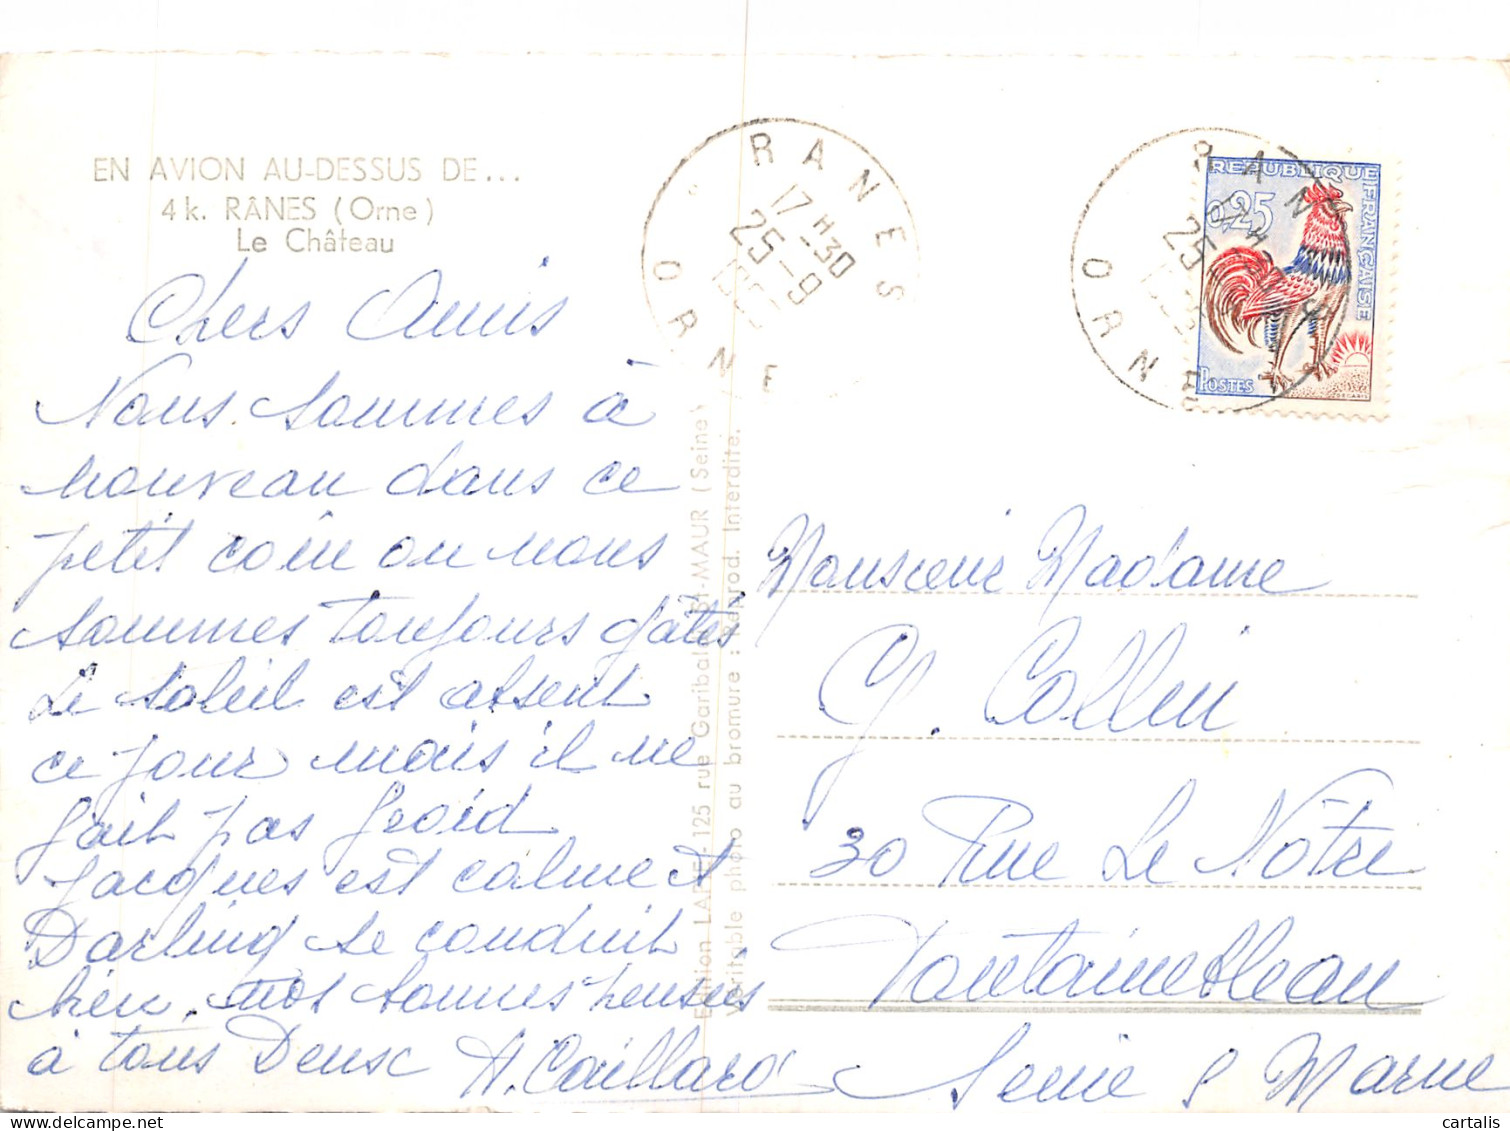 EN AVION AU-DESSUS DE...
4 k. RÂNES (Orne)
Le Château
Chers Amis
Nous sommes à
nouveau dans ce
petit coin ou nous
sommes toujours gâtés
Le soleil est absent
ce jour mais il ne
fait pas froid
Jacques est calme et
Darling se conduit
bien. nos bonnes pensées
à tous Deux A. Caillard
Edition LAPIE - 125 rue Garibaldi ST-MAUR (Seine)
Véritable photo au bromure : Reprod. Interdite.
RANES
17 H 30
25 - 9
ORNE
RANES
17 H 30
25 - 9
ORNE
REPUBLIQUE FRANÇAISE
0,25
POSTES
DECARIS
Monsieur Madame
G. Collin
30 Rue Le Nôtre
Fontainebleau
Seine & Marne
cartalis